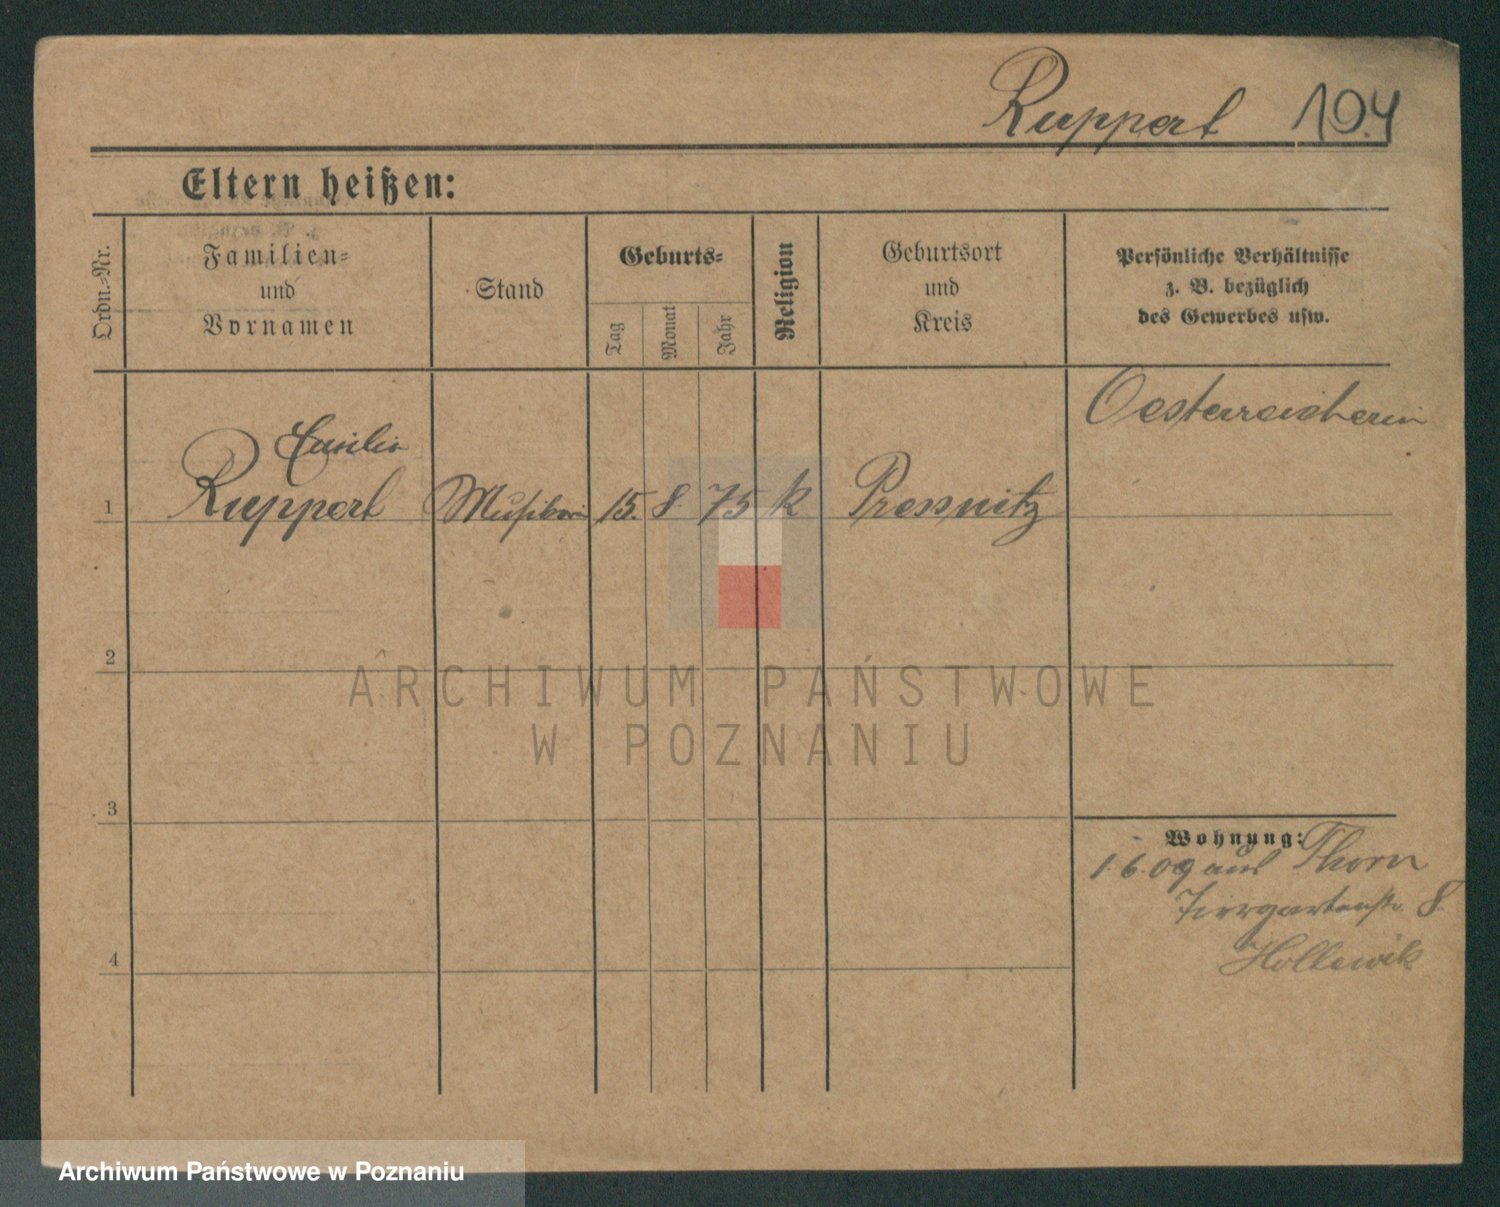 Ruppert 194
Eltern heißen:
Ordn.-Nr.
Familien-
und
Vornamen
Stand
Geburts-
Tag
Monat
Jahr
Religion
Geburtsort
und
Kreis
Persönliche Verhältnisse
z. B. bezüglich
des Gewerbes usw.
Oesterreicherin
Emilie
1 Ruppert Musikerin 15. 8. 75 k Pressnitz
2
ARCHIWUM PAŃSTWOWE
W POZNANIU
3
Wohnung:
1. 6. 09 aus Thorn
Tiergartenstr. 8.
4
Archiwum Państwowe w Poznaniu